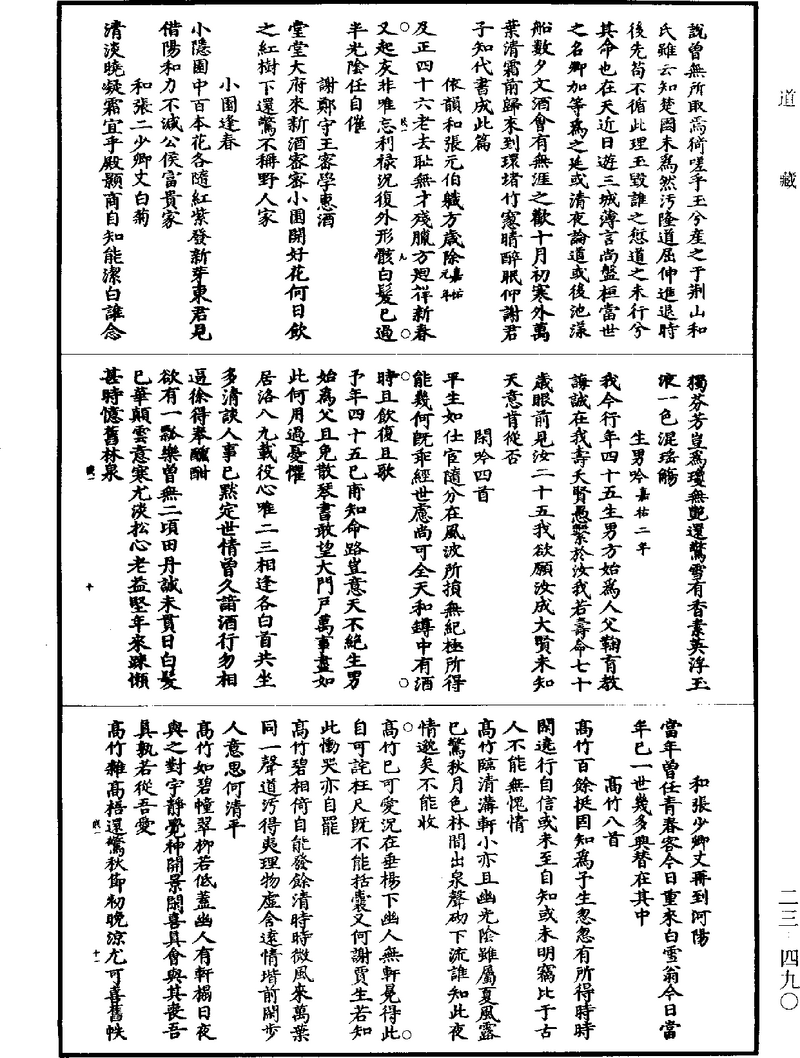 道藏
說曾無所取焉猗嗟乎玉兮產之于荆山和
氏雖云知楚國未為然汚隆道屈伸進退時
後先苟不循此理玉毀誰之愆道之未行兮
其命也在天近日遊三城薄言尚盤桓當世
之名卿加等為之延或清夜論道或後池漾
船數夕文酒會有無涯之歡十月初寒外萬
葉清霜前歸來到環堵竹窻晴醉眠仰謝君
子知代書成此篇
依韻和張元伯職方歲除嘉祐元年
及正四十六老去耻無才殘臘方迴律新春
又起灰非唯忘利祿況復外形骸白髮已過
半光陰任自催
謝鄭守王密學惠酒
堂堂大府來新酒密密小園開好花何日飲
之紅樹下還驚不稱野人家
小園逢春
小隱園中百本花各隨紅紫發新芽東君見
借陽和力不減公侯富貴家
和張二少卿丈白菊
清淡曉凝霜宜乎殿顥商自知能潔白誰念
獨芬芳豈為瓊無艷還驚雪有香素英浮玉
液一色混瑤觴
生男吟嘉祐二年
我今行年四十五生男方始為人父鞠育教
誨誠在我壽夭賢愚繫於汝我若壽命七十
歲眼前見汝二十五我欲願汝成大賢未知
天意肯從否
閑吟四首
平生如仕宦隨分在風波所損無紀極所得
能幾何既乖經世慮尚可全天和罇中有酒
時且飲復且歌
予年四十五已甫知命路豈意天不絕生男
始為父且免散琴書敢望大門戶萬事盡如
此何用過憂懼
居洛八九載役心唯二三相逢各白首共坐
多清談人事已默定世情曾久諳酒行勿相
逼徐得奉醺酣
欲有一瓢樂曾無二頃田丹誠未貫日白髮
已華顛雲意寒尤淡松心老益堅年來踈懶
甚時憶舊林泉
十
和張少卿丈再到河陽
當年曾任青春客今日重來白雪翁今日當
年已一世幾多興替在其中
高竹八首
高竹百餘挺固知為予生忽忽有所得時時
閑遶行自信或未至自知或未明竊比于古
人不能無愧情
高竹臨清溝軒小亦且幽光陰雖屬夏風露
已驚秋月色林間出泉聲砌下流誰知此夜
情邈矣不能收
高竹已可愛況在垂楊下幽人無軒冕得此
自可詫枉尺既不能括囊又何謝賈生若知
此慟哭亦自罷
高竹碧相倚自能發餘清時時微風來萬葉
同一聲道汚得夷理物虛含遠情堦前閑步
人意思何清平
高竹如碧幢翠柳若低蓋幽人有軒榻日夜
與之對宇靜覺神開景閑喜真會與其喪吾
真孰若從吾愛
高竹雜高梧還驚秋節初晚涼尤可喜舊帙
十一
二三·四九〇